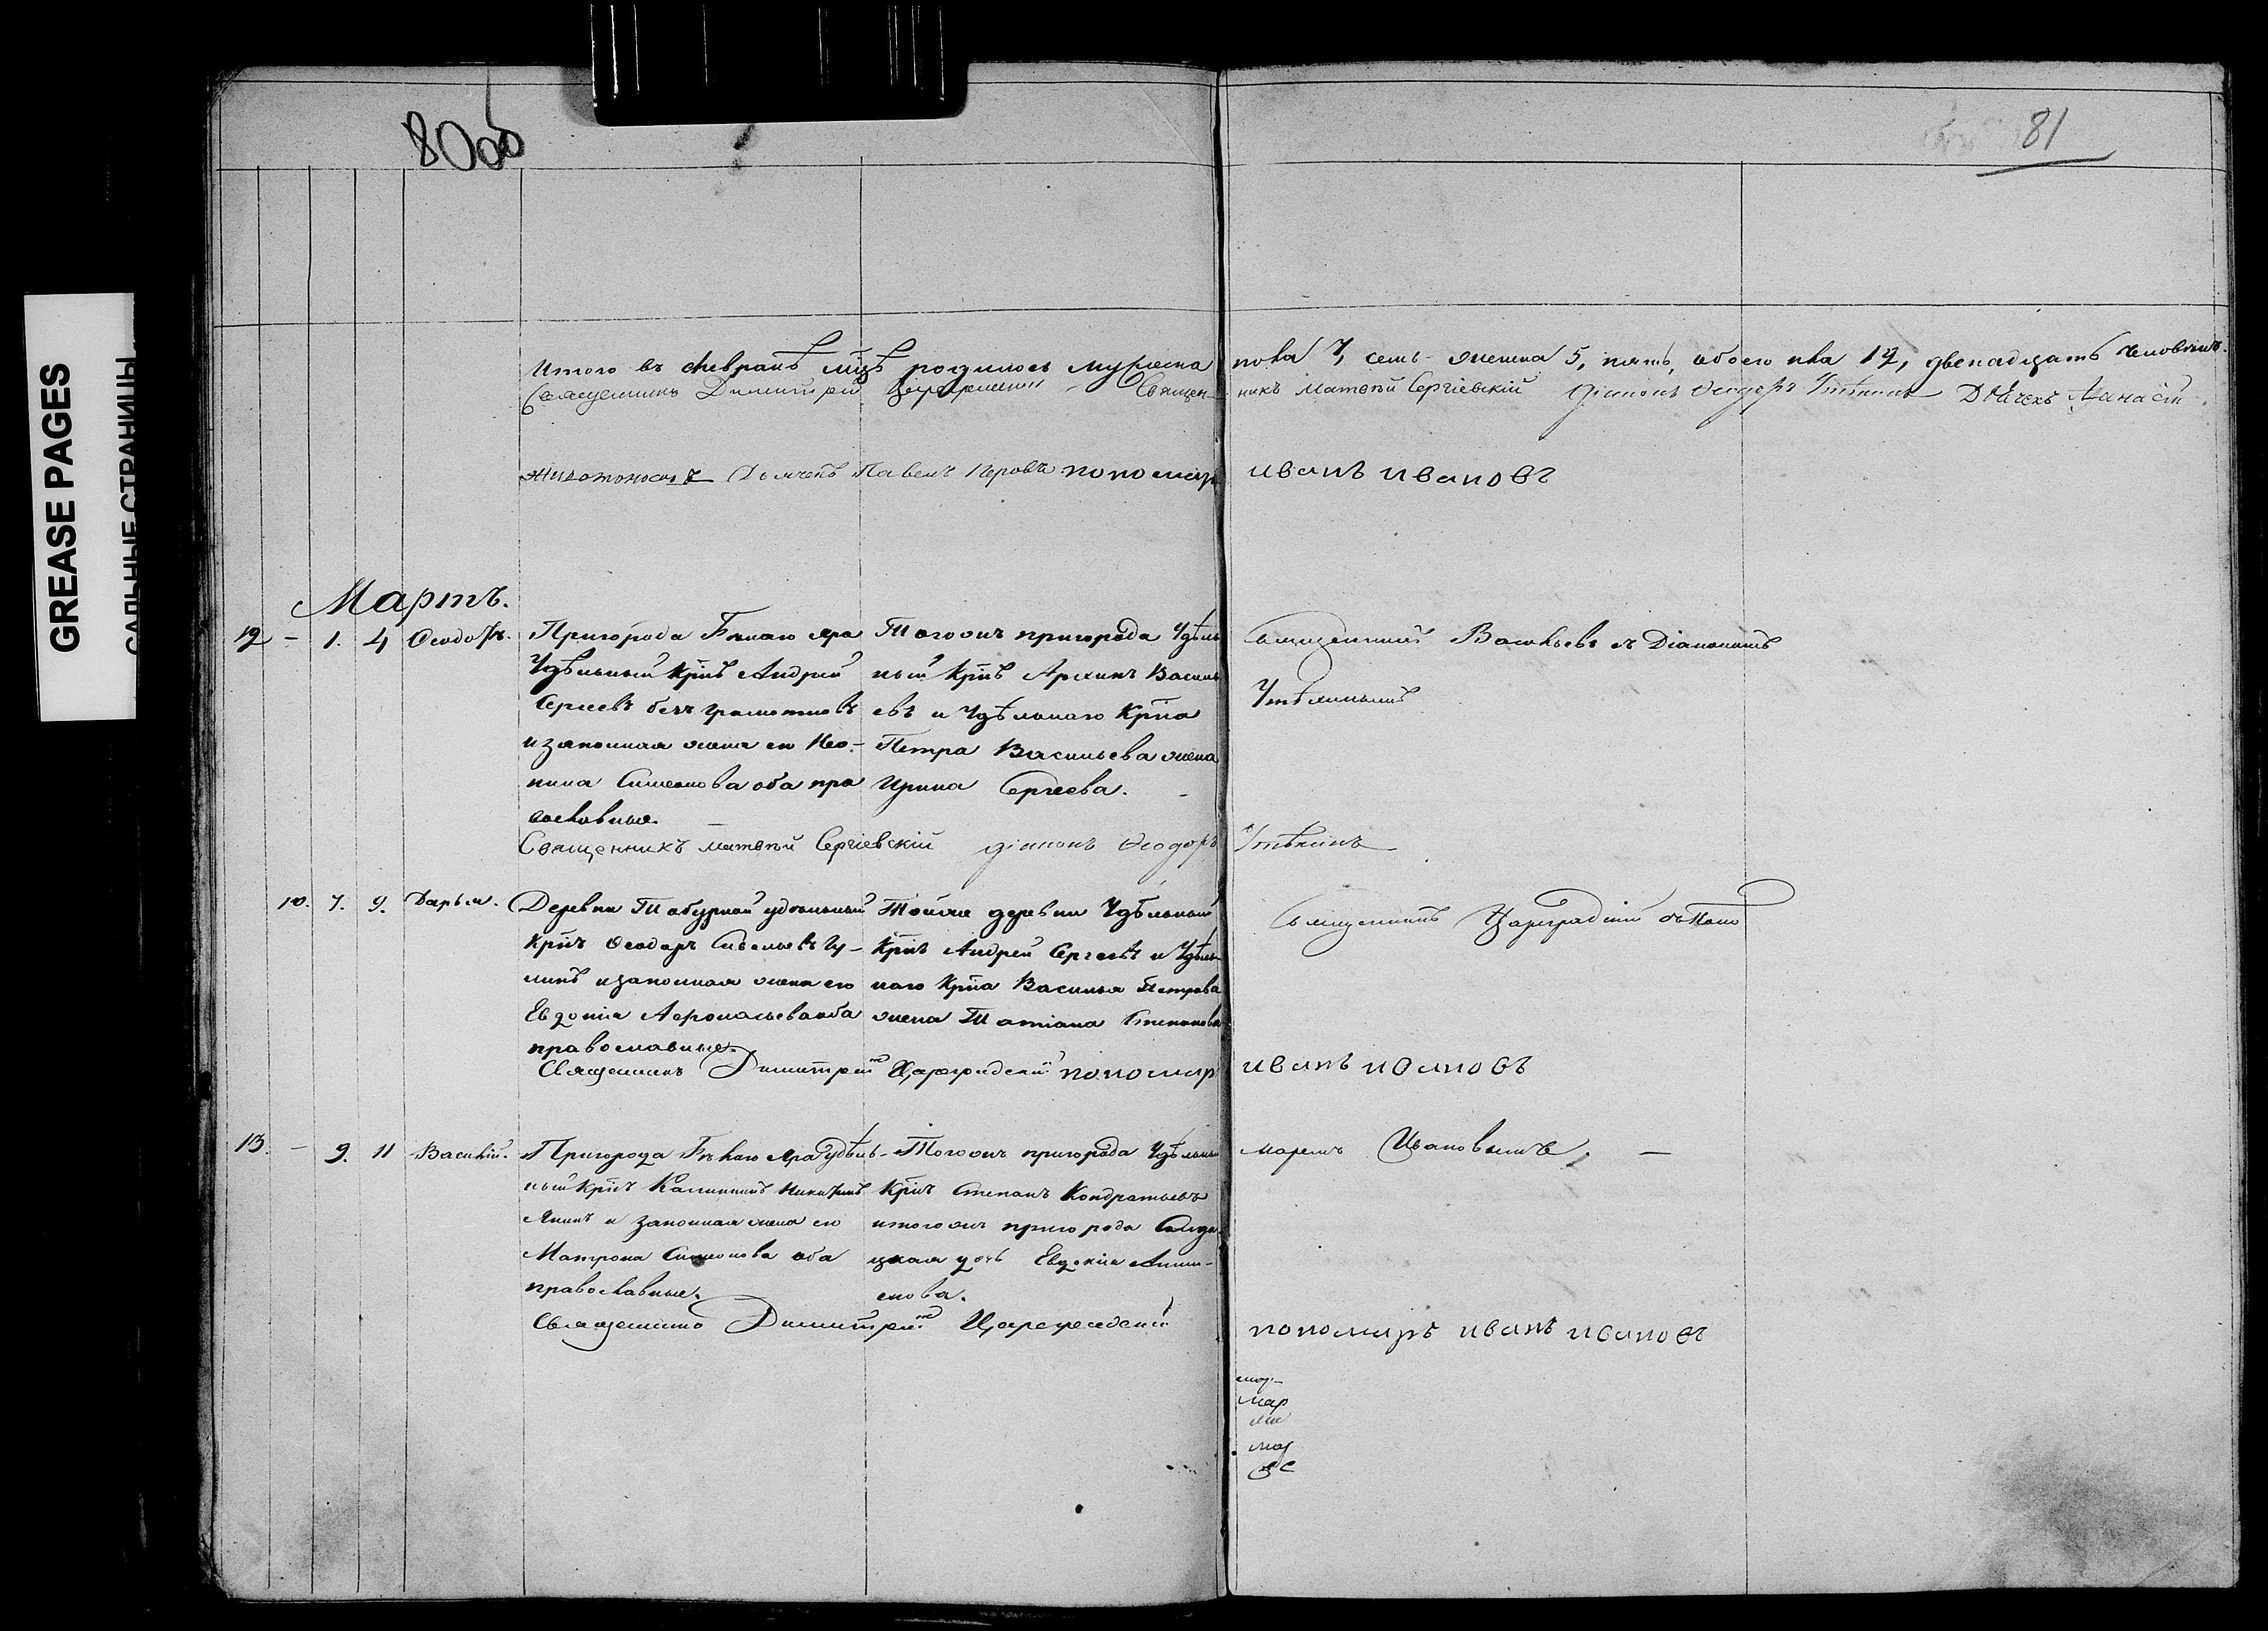 GREASE PAGES
САЛЬНЫЕ СТРАНИЦЫ
80об
81
Итого въ февралѣ мцѣ родилось мужеска пола 7, семь женска 5, пять, обоего пла 12, двенадцать человѣкъ.
Священникъ Димитрій Цареградскій Священникъ Матвѣй Сергіевскій Діаконъ Ѳеодоръ Утѣхинъ Дьячекъ Аѳанасій
Животоносовъ Дьячекъ Павелъ Перовъ пономарь иванъ ивановъ
Мартъ.
12 – 1. 4 Ѳеодоръ.
Пригорода Бѣлаго яра
Удѣльный Крнъ Андрей
Сергеевъ
и законная жена ео Нео-
нила Симеонова оба пра
вославные.
Тогожъ пригорода Удѣль
ный Крнъ Архипъ Василь
евъ и Удѣльнаго Крна
Петра Васильева жена
Ирина Сергеева.
Священникъ Васильевъ съ Діакономъ
Утѣхинымъ
Священникъ Матвѣй Сергіевскій діаконъ Ѳеодоръ Утѣхинъ
10. 7. 9. Дарья.
Деревни Табурной удѣльный
Крнъ Ѳеодоръ Савельевъ
и законная жена его
Евдокія оба
православные.
Тойже деревни Удѣльный
Крнъ Андрей Сергеевъ и Удѣль
наго Крна Василья Петрова
жена Татіана Степанова
Священникъ Цареградскій
Священникъ Димитрій Цареградскій пономарь иванъ ивановъ
13. – 9. 11 Василій.
Пригорода Бѣлаго Яра удѣль-
ный Крнъ Калинникъ Никитинъ
Янинъ и законная жена его
Матрона Симеонова оба
православные.
Тогожъ пригорода Удѣльный
Крнъ Степанъ Кондратьевъ
и тогожъ пригорода Солда
цкая дочь Евдокія Аники-
енова.
Ивановымъ. —
Священникъ Димитрій Цареградскій
пономарь иванъ ивановъ
мар